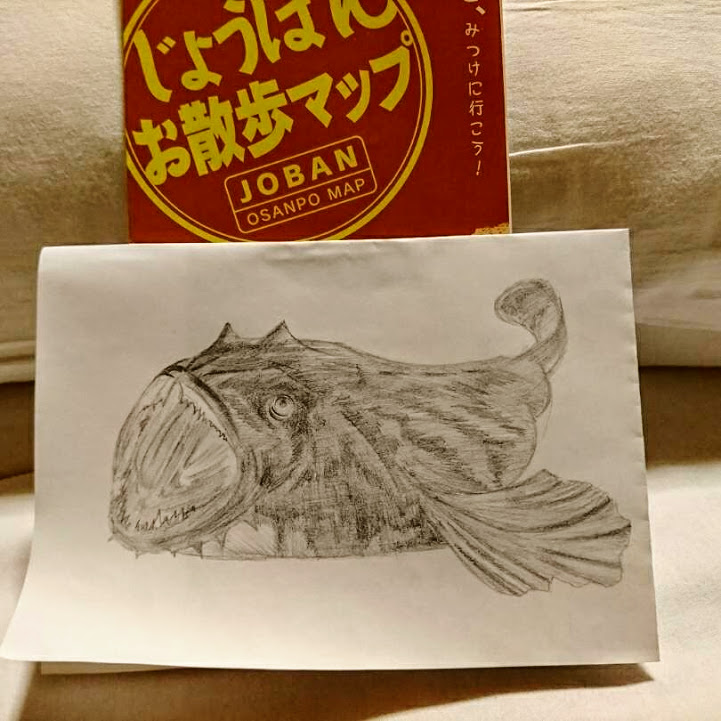 じょうばん
お散歩マップ
JOBAN
OSANPO MAP
みつけに行こう!